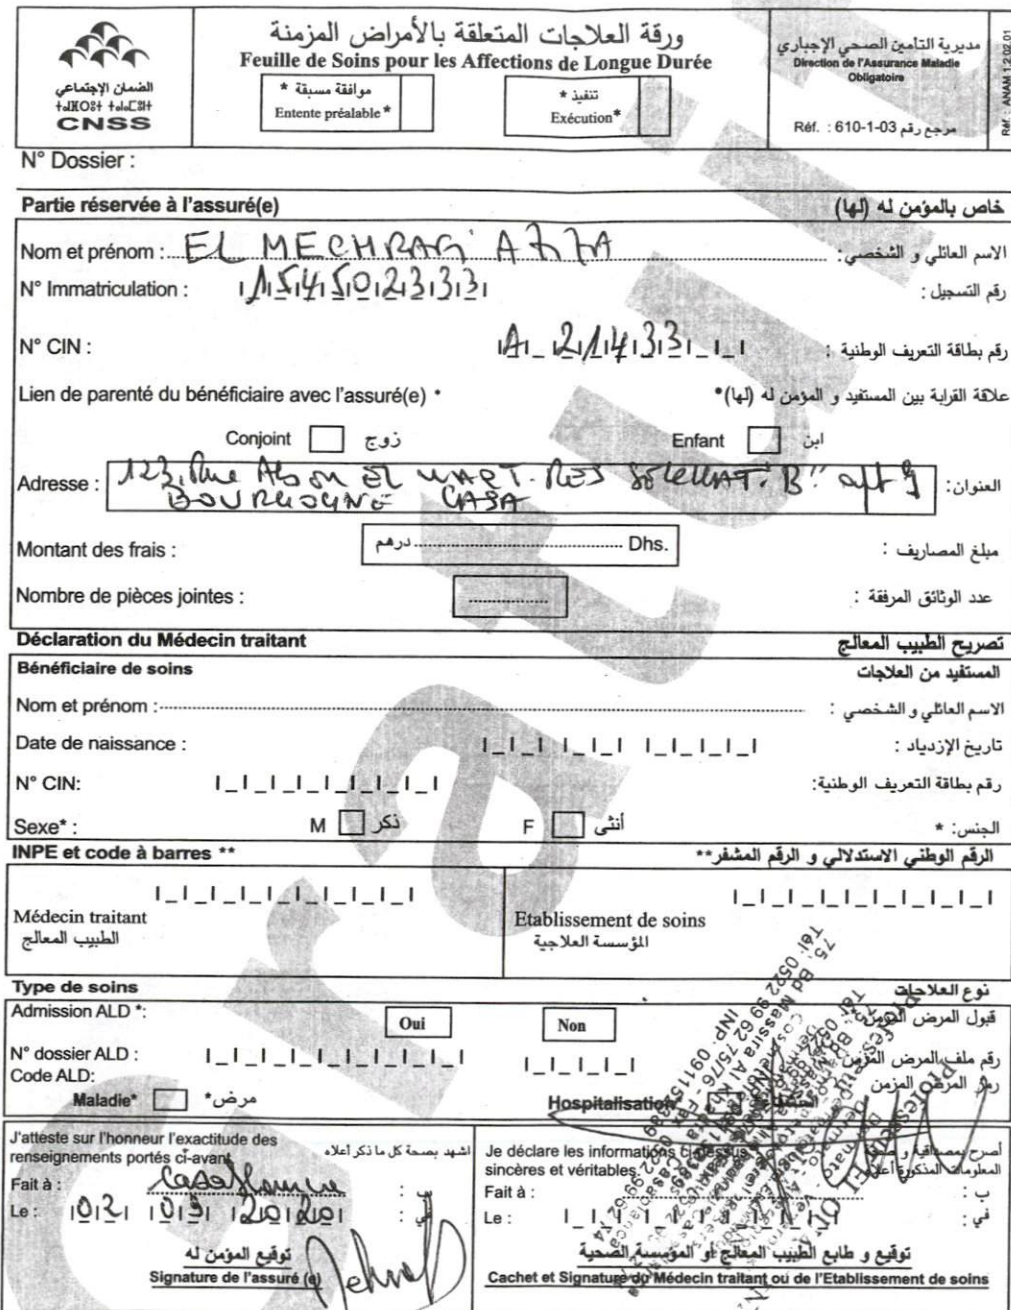 ورقة العلاجات المتعلقة بالأمراض المزمنة
Feuille de Soins pour les Affections de Longue Durée
الضمان الإجتماعي
CNSS
موافقة مسبقة *
Entente préalable *
تنفيذ *
Exécution*
مديرية التأمين الصحي الإجباري
Direction de l'Assurance Maladie
Obligatoire
Réf. : 610-1-03 مرجع رقم
Réf. : ANAM 1.2.02.01
N° Dossier :
Partie réservée à l'assuré(e) خاص بالمؤمن له (لها)
Nom et prénom : EL MECHRAFI AZZA الاسم العائلي و الشخصي:
N° Immatriculation : 154502333 رقم التسجيل :
N° CIN : A 21433 رقم بطاقة التعريف الوطنية :
Lien de parenté du bénéficiaire avec l'assuré(e) * علاقة القرابة بين المستفيد و المؤمن له (لها)*
Conjoint زوج Enfant ابن
Adresse : 123, Rue EL RES "B" العنوان:
BOURGOGNE CASA
Montant des frais : درهم Dhs. مبلغ المصاريف :
Nombre de pièces jointes : عدد الوثائق المرفقة :
Déclaration du Médecin traitant تصريح الطبيب المعالج
Bénéficiaire de soins المستفيد من العلاجات
Nom et prénom : الاسم العائلي و الشخصي :
Date de naissance : تاريخ الإزدياد :
N° CIN: رقم بطاقة التعريف الوطنية:
Sexe* : M ذكر F أنثى الجنس: *
INPE et code à barres ** الرقم الوطني الاستدلالي و الرقم المشفر**
Médecin traitant
الطبيب المعالج
Etablissement de soins
المؤسسة العلاجية
Type de soins نوع العلاجات
Admission ALD *: Oui Non قبول المرض المزمن
N° dossier ALD : رقم ملف المرض المزمن
Code ALD: رمز المرض المزمن
Maladie* مرض* Hospitalisation
75, Bd Massira Al Khadra
Tél: 0522 99 62 75/76
J'atteste sur l'honneur l'exactitude des
renseignements portés ci-avant
اشهد بصحة كل ما ذكر أعلاه
Fait à : Casablanca ب :
Le : 02 09 2020 في :
توقيع المؤمن له
Signature de l'assuré (e)
Je déclare les informations ci-dessus
sincères et véritables.
المعلومات المذكورة أعلاه
Fait à : ب :
Le : في :
توقيع و طابع الطبيب المعالج أو المؤسسة الصحية
Cachet et Signature du Médecin traitant ou de l'Etablissement de soins
Gratuit